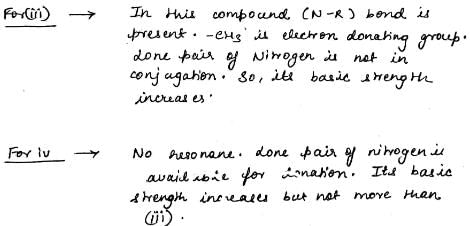 For(iii) → In this compound (N-R) bond is
present. -CH3 is electron donating group.
Lone pair of Nitrogen is not in
conjugation. So, its basic strength
increases.
For iv → No resonane. Lone pair of nitrogen is
available for ionation. Its basic
strength increases but not more than
(iii).